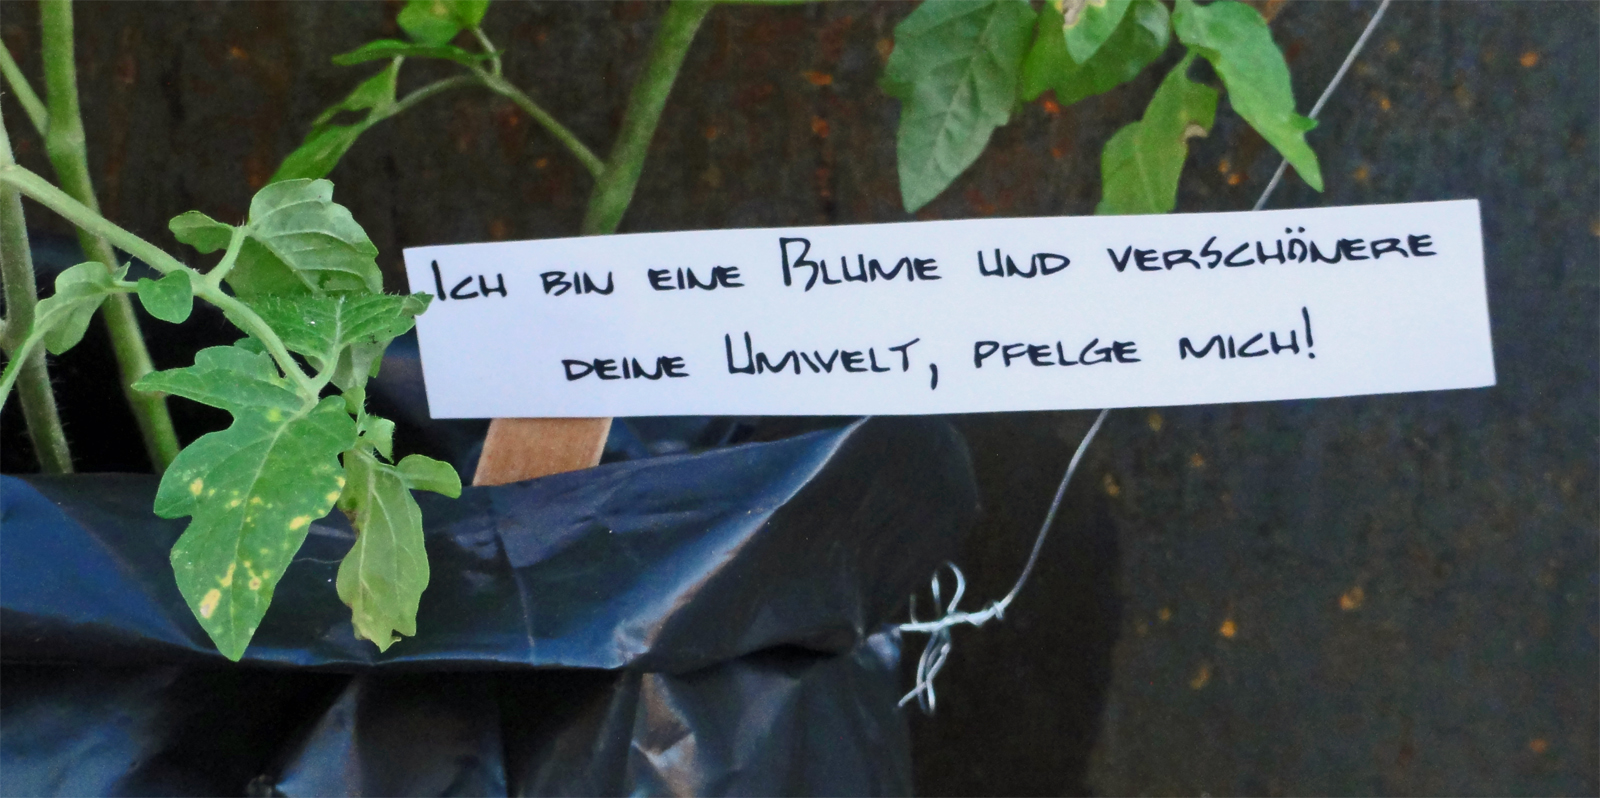 Ich bin eine Blume und verschönere
deine Umwelt, pfelge mich!